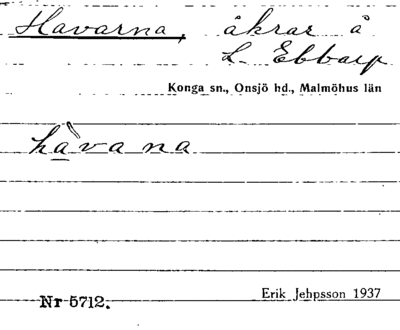 Havarna, åkrar å
L. Ebbarp
Konga sn., Onsjö hd., Malmöhus län
hàvana
Erik Jehpsson 1937
Nr 5712.